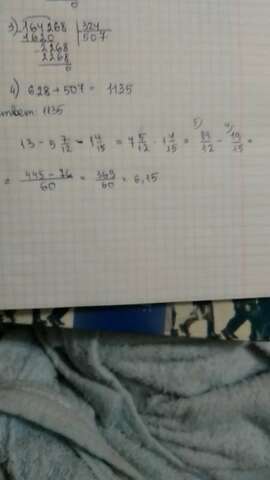 3) 164268 | 324
1620 | 507
2268
2268
0
4) 628 + 507 = 1135
ответ: 1135
13 - 5 7/12 - 1 4/15 = 7 5/12 - 1 4/15 = 89/12 - 19/15 =
= 445 - 76 / 60 = 369/60 = 6,15